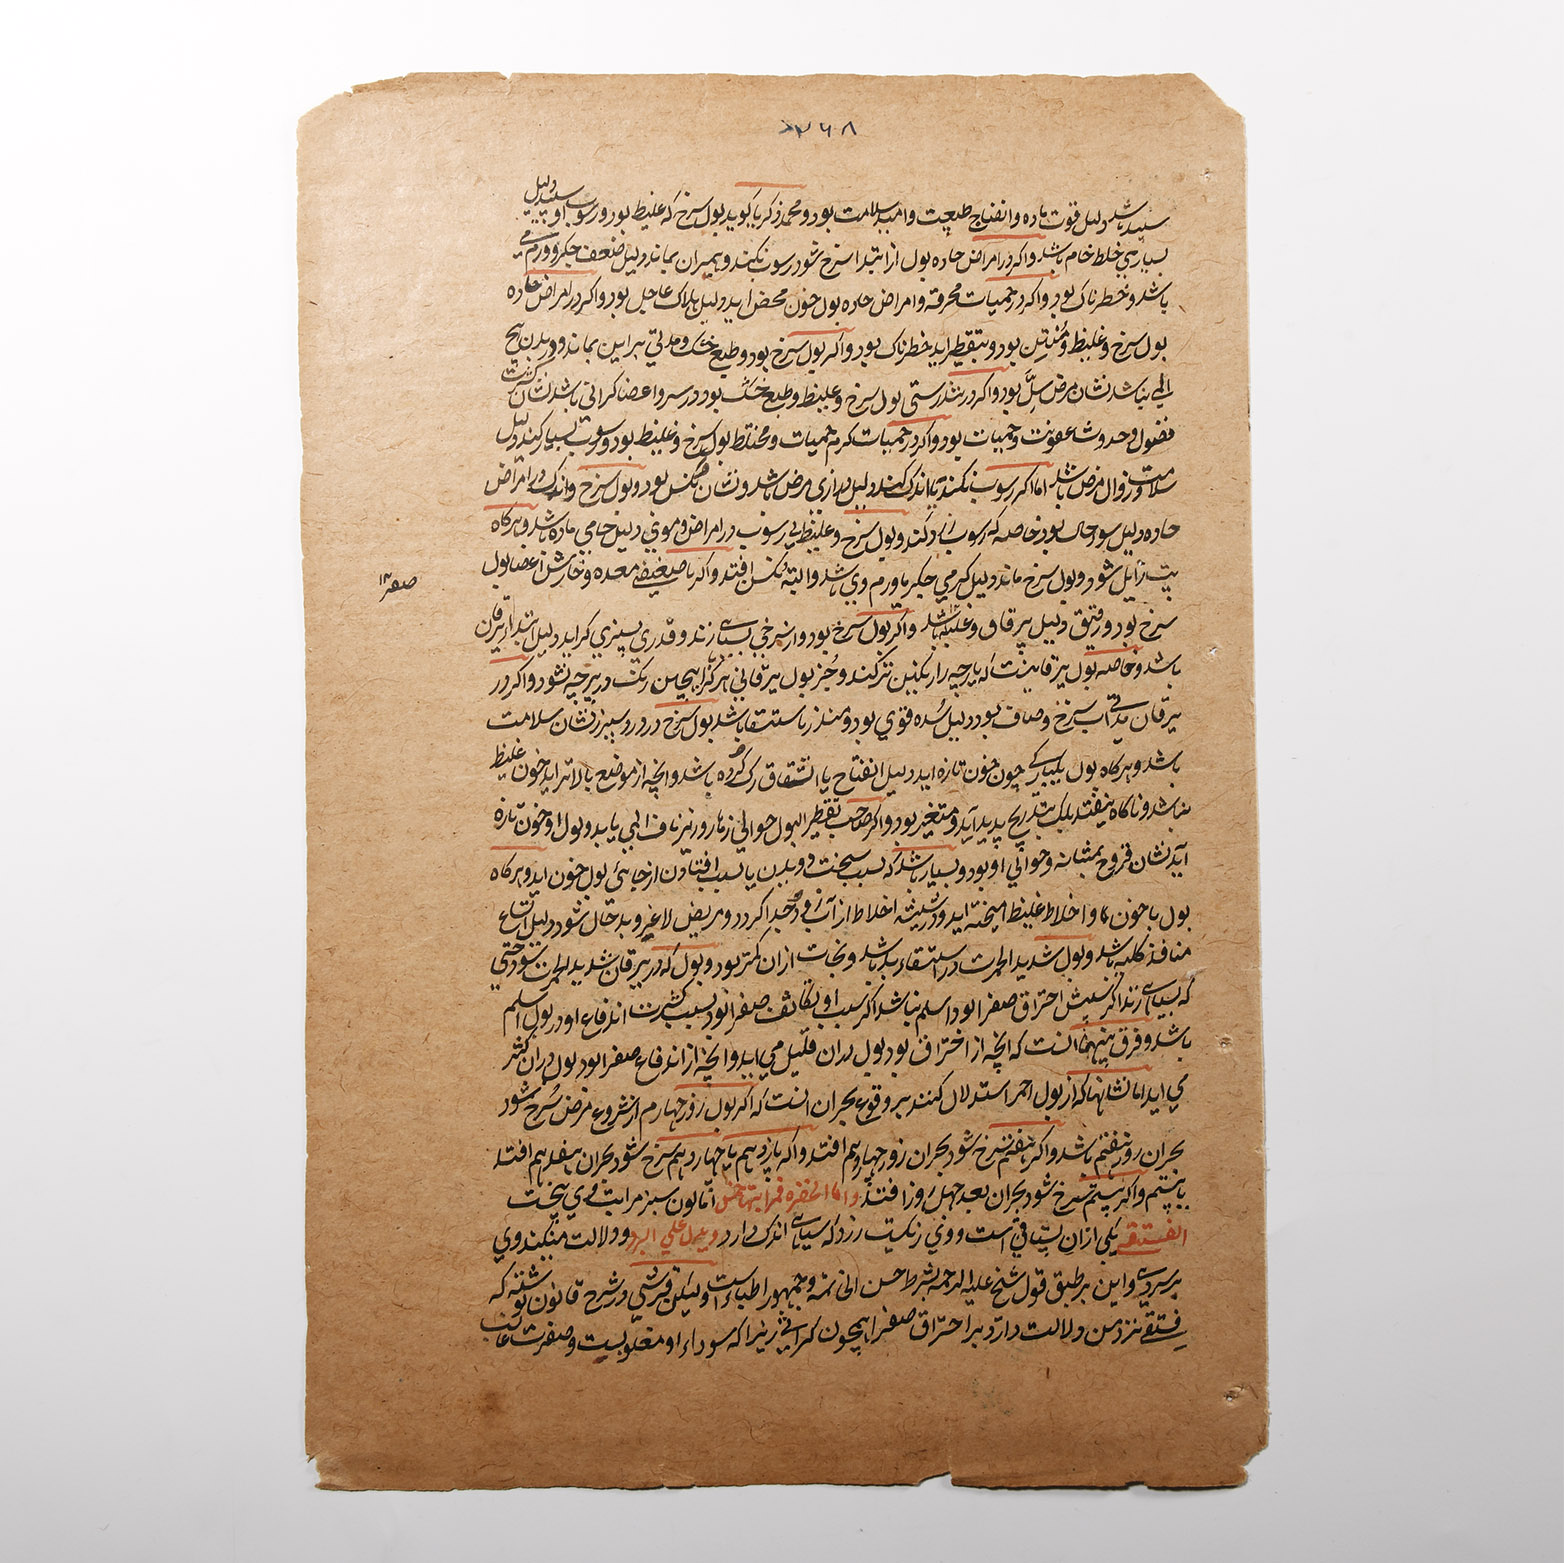 ۲۶۸
سپید باشد دلیل قوت ماده و انفتاج طبیعت و امید سلامت بود و محمد زکریا کوید بول سرخ که غلیظ بود و رسوب او سپید دلیل
بسیاری خلط خام باشد و اکر در امراض حاده بول از ابتدا سرخ شود رسوب نکند و همبران بماند دلیل ضعف جکر و ورم وی
باشد و خطرناک بود و اکر در حمیات محرقه و امراض حاده بول خون محض اید دلیل هلاک عاجل بود و اکر در امراض حاده
بول سرخ و غلیظ و منتن بود و بتقطیر اید خطرناک بود و اکر بول سرخ بود و طبع خشک و مدتی برین بماند و در بدن هیچ
المی نباشد نشان مرض سل بود و اکر در تندرستی بول سرخ و غلیظ و طبع خشک بود در سر و اعضا کرانی باشد نشان کثرت
فضول و حدوث عفونت و حمیات بود و اکر در حمیات کرم حمیات و مختلط بول سرخ و غلیظ بود و رسوب بسیار کند دلیل
سلامت و زوال مرض باشد اما اکر رسوب نکند یا اندکی کند دلیل درازی مرض باشد و نشان نکس بود و بول سرخ و اندک در امراض
حاده دلیل سوء حال بود خاصه که رسوب زرد کند و بول سرخ و غلیظ بی رسوب در امراض دموی دلیل خامی ماده باشد و هرکاه
تب زایل شود و بول سرخ ماند دلیل کرمی جکر یا ورم وی باشد و البته نکس افتد و اکر با ضعیفی معده و خارش اعضا بول
صفر ۱۲
سرخ بود و رقیق دلیل یرقان و غلبه باشد و اکر بول سرخ بود و از سرخی بسیاهی زند و قدری بسبزی کراید دلیل ابتدا از یرقان
باشد و خاصه بول یرقانیست که پارچه را رنکین تر کند و جز بول یرقانی هرکز هیچ رنک در پارچه نشود و اکر در
یرقان مدتی آب سرخ و صاف بود دلیل سده قوی بود و منذر باستسقا باشد بول سرخ در درد سپرز نشان سلامت
باشد و هرکاه بول یکبارکی چون خون تازه اید دلیل انفتاح یا انشقاق رک کرده باشد و انچه از موضع بالاتر اید خون غلیظ
نباشد و ناکاه نیفتد بلک بتدریج پدید آید و متغیر بود و اکر صاحب تقطیر البول حوالی زهار و زیر ناف المی یابد و بول او خون تازه
آید نشان قروح بمثانه و حوالی او بود و بسیار باشد که بسبب سخت دویدن یا بسبب افتادن از جائی بول خون اید و هرکاه
بول با خون و اخلاط غلیظ امیخته اید و در شیشه اخلاط از آب جدا کردد و مریض لاغر و بد حال شود دلیل اتساع
منافذ کلیه باشد و بول شدید الحمرت در استسقاء بد باشد و نجات ازان کمتر بود و بول که در یرقان شدید الحمرت شود حتی
که بسیاهی زند اکر سببش احتراق صفرا بود اسلم نباشد اکر سبب او تکاثف صفرا بود بسبب کثرت اندفاع او در بول اسلم
باشد و فرق بینهما انست که انچه از احتراق بود بول بدان قلیل می اید و انچه از اندفاع صفرا بود بول دران کثیر
می اید اما نشانها که از بول احمر استدلال کنند بر وقوع بحران انست که اکر بول روز چهارم از شروع مرض سرخ شود
بحران روز هفتم باشد و اکر هفتم سرخ شود بحران روز چهاردهم افتد و اکر یازدهم یا چهاردهم سرخ شود بحران هفدهم افتد
یا بیستم و اکر بیستم سرخ شود بحران بعد چهل روز افتد واما الخضره فمراتبها خمس اما لون سبز مراتب وی پنجست
الفستقی یکی ازان پستاقی است و وی رنکیست زرد که سیاهی اندک دارد ویدل علی البرد و دلالت میکند وی
بر سردی و این بر طبق قول شیخ علیه الرحمه بشرط حسن الخاتمه و جمهور اطباءست ولیکن قرشی در شرح قانون نوشته که
فستقی نزد من دلالت دارد بر احتراق صفرا همچون کراثی زیرا که سوداء او مغلوبست و صفرت غالب